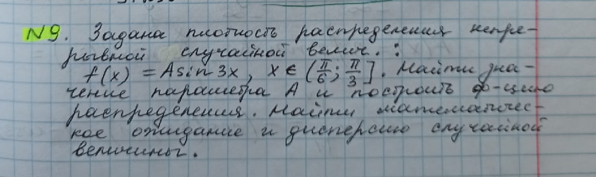 N9. Задана плотность распределения непре-
рывной случайной велич. :
f(x) = A sin 3x, x ∈ (π/6; π/3]. Найти зна-
чение параметра A и построить ф-цию
распределения. Найти математичес-
кое ожидание и дисперсию случайной
величины.